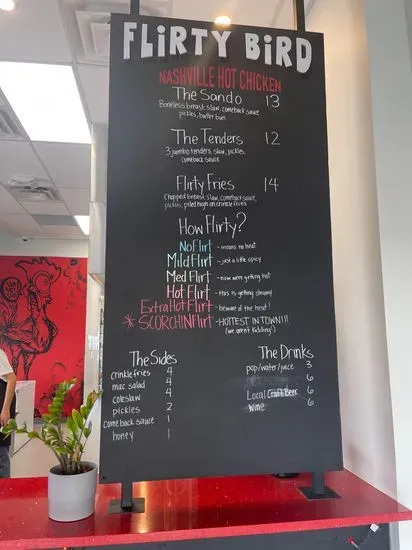 FLiRTY BiRD
NASHVILLE HOT CHICKEN
The Sando 13
Boneless breast, slaw, comeback sauce,
pickles, butter bun
The Tenders 12
3 jumbo tenders, slaw, pickles,
comeback sauce
Flirty Fries 14
Chopped breast, slaw, comeback sauce,
pickles, piled high on crinkle fries
How Flirty?
No Flirt - means no heat
Mild Flirt - just a little spicy
Med Flirt - now we're getting hot
Hot Flirt - this is getting steamy
Extra Hot Flirt - beware of the heat!
* SCORCHIN Flirt - HOTTEST IN TOWN!!!
(we aren't kidding!)
The Sides
crinkle fries 4
mac salad 4
coleslaw 4
pickles 2
comeback sauce 1
honey 1
The Drinks
pop/water/juice 3
6
Local Craft Beer 6
Wine 6